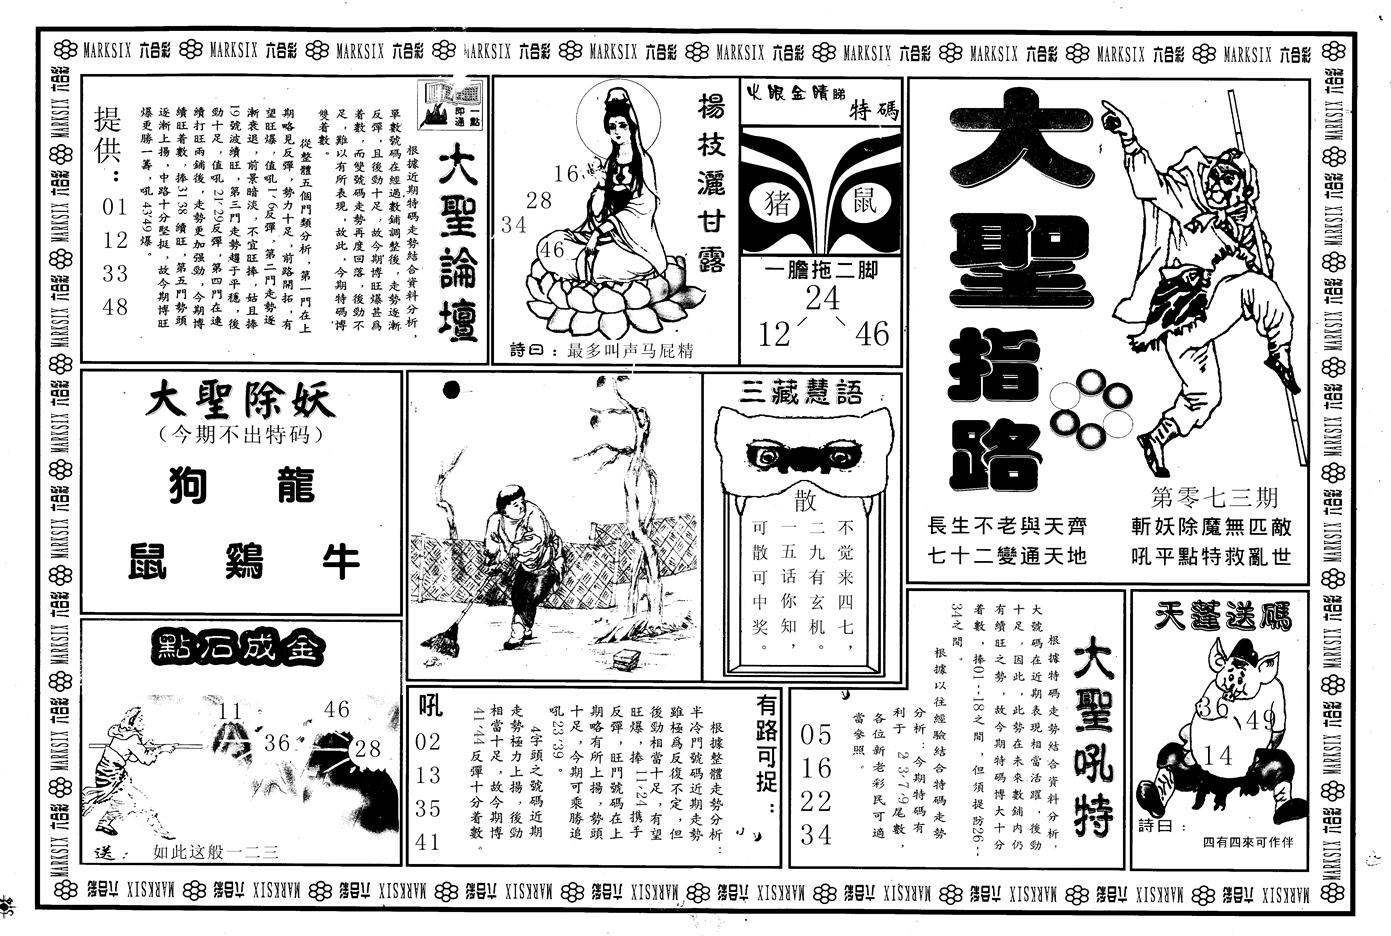 MARKSIX 六合彩 MARKSIX 六合彩 MARKSIX 六合彩 MARKSIX 六合彩 MARKSIX 六合彩 MARKSIX 六合彩 MARKSIX 六合彩 MARKSIX 六合彩 MARKSIX 六合彩 MARKSIX 六合彩
大聖指路
第零七三期
斬妖除魔無匹敵
吼平點特救亂世
長生不老與天齊
七十二變通天地
火眼金睛睇
特碼
猪
鼠
一膽拖二脚
24
12
46
楊枝灑甘露
16
28
34
46
詩曰：最多叫声马屁精
一點即通
大聖論壇
根據近期特碼走勢結合資料分析，
單數號碼在經過數鋪調整後，走勢逐漸
反彈，且後勁十足，故今期博旺爆甚爲
着數，而雙號碼走勢再度回落，後勁不
足，難以有所表現，故此，今期特碼博
雙着數。
從整體五個門類分析，第一門在上
期略見反彈，勢力十足，前路開拓，有
望旺爆，值吼1、6反彈，第二門走勢逐
漸衰退，前景暗淡，不宜旺捧，姑且捧
19號波續旺，第三門走勢趨于平穩，後
勁十足，值吼21、29反彈，第四門在連
續打旺兩鋪後，走勢更加强勁，今期博
續旺着數，捧31、38續旺，第五門勢頭
逐漸上揚，中路十分堅挺，故今期博旺
爆更勝一籌，吼43、49爆。
提供：
01
12
33
48
大聖除妖
（今期不出特码）
狗 龍
鼠 鷄 牛
三藏慧語
散
不觉来四七，
二九有玄机。
一五话你知，
可散可中奖。
點石成金
11
36
46
28
送：
如此这般一二三
有路可捉：
根據整體走勢分析：
半冷門號碼近期走勢
雖極爲反復不定，但
後勁相當十足，有望
旺爆，捧11、24携手
反彈，旺門號碼在上
期略有所上揚，勢頭
十足，今期可乘勝追
吼23、39。
4字頭之號碼近期
走勢極力上揚，後勁
相當十足，故今期博
41、44反彈十分着數。
吼
02
13
35
41
大聖吼特
根據特碼走勢結合資料分析，
大號碼在近期表現相當活躍，後勁
十足，因此，此勢在未來數鋪内仍
有續旺之勢，故今期特碼博大十分
着數，捧01--18之間，但須提防26--
34之間。
根據以往經驗結合特碼走勢
分析：今期特碼有
利于 2、3、7、9尾數，
各位新老彩民可適
當參照。
05
16
22
34
天蓬送碼
36
49
14
詩曰：
四有四來可作伴
MARKSIX 六合彩 MARKSIX 六合彩 MARKSIX 六合彩 MARKSIX 六合彩 MARKSIX 六合彩 MARKSIX 六合彩 MARKSIX 六合彩 MARKSIX 六合彩 MARKSIX 六合彩 MARKSIX 六合彩